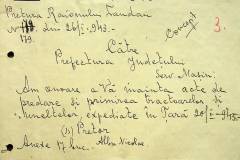 Pretura Raionului Landau
Nr din 26/I-943.-
179.
Concept
3.
Către
Prefectura Județului
Serv. Mașini.
Am onoare a Vă înainta acte de
predare și primirea tractoarelor și
uneltelor, expediate în Țară 20/I-943.-
(ss) Pretor
Anexe 17 buc. Nicolae